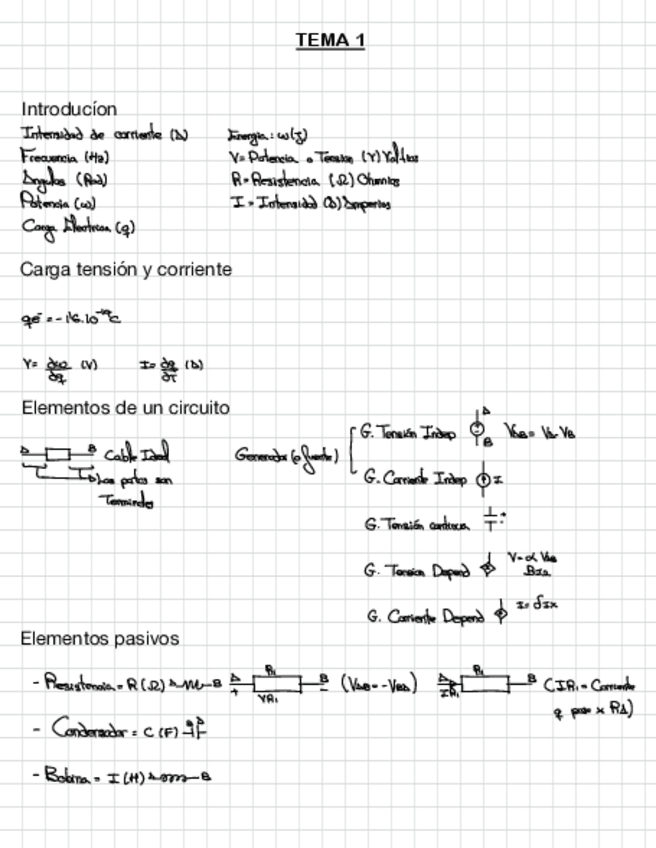 TEMA 1
Introducíon
Intensidad de corriente (A)
Frecuencia (Hz)
Angulos (Rad)
Potencia (w)
Carga Electrica (q)
Energia: w(J)
V= Potencia o Tension (V) Voltios
R= Resistencia (Ω) Ohmnios
I = Intensidad (A) Amperios
Carga tensión y corriente
qe⁻ = -1'6.10⁻¹⁹ C
V= dω/dq (V) I= dq/dt (A)
Elementos de un circuito
A B Cable Ideal
Las patas son
Terminales
Generador (o fuente)
G. Tensión Indep A B VAB = VA - VB
G. Corriente Indep I
G. Tensión continua
G. Tension Depend V= α VAB
G. Corriente Depend I= δIx
Elementos pasivos
- Resistencia = R (Ω) A B A + R1 VR1 B - (VAB = -VBA) A IR1 R1 B (IR1 = Corriente
q pasa x R1)
- Condensador = C (F) A B
- Bobina = I (H) A B